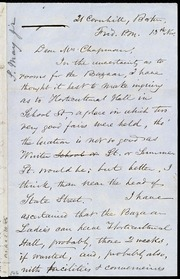 21 Cornhill, Boston,
Dear Mrs Chapman,
In the uncertainty as to
rooms for the Bazaar, I have
thought it best to make inquiry
as to Horticultural Hall in
School St. - a place in which two
very good fairs were held. tho'
the location is not so good as
Winter School St. or Summer
St. would be; but better, I
think, than near the head of
State Street. I have
ascertained that the Bazaar
Ladies can hear Horticultural
Hall, probably, three 2 weeks
if wanted, and, probably also,
with facilities & conveniences